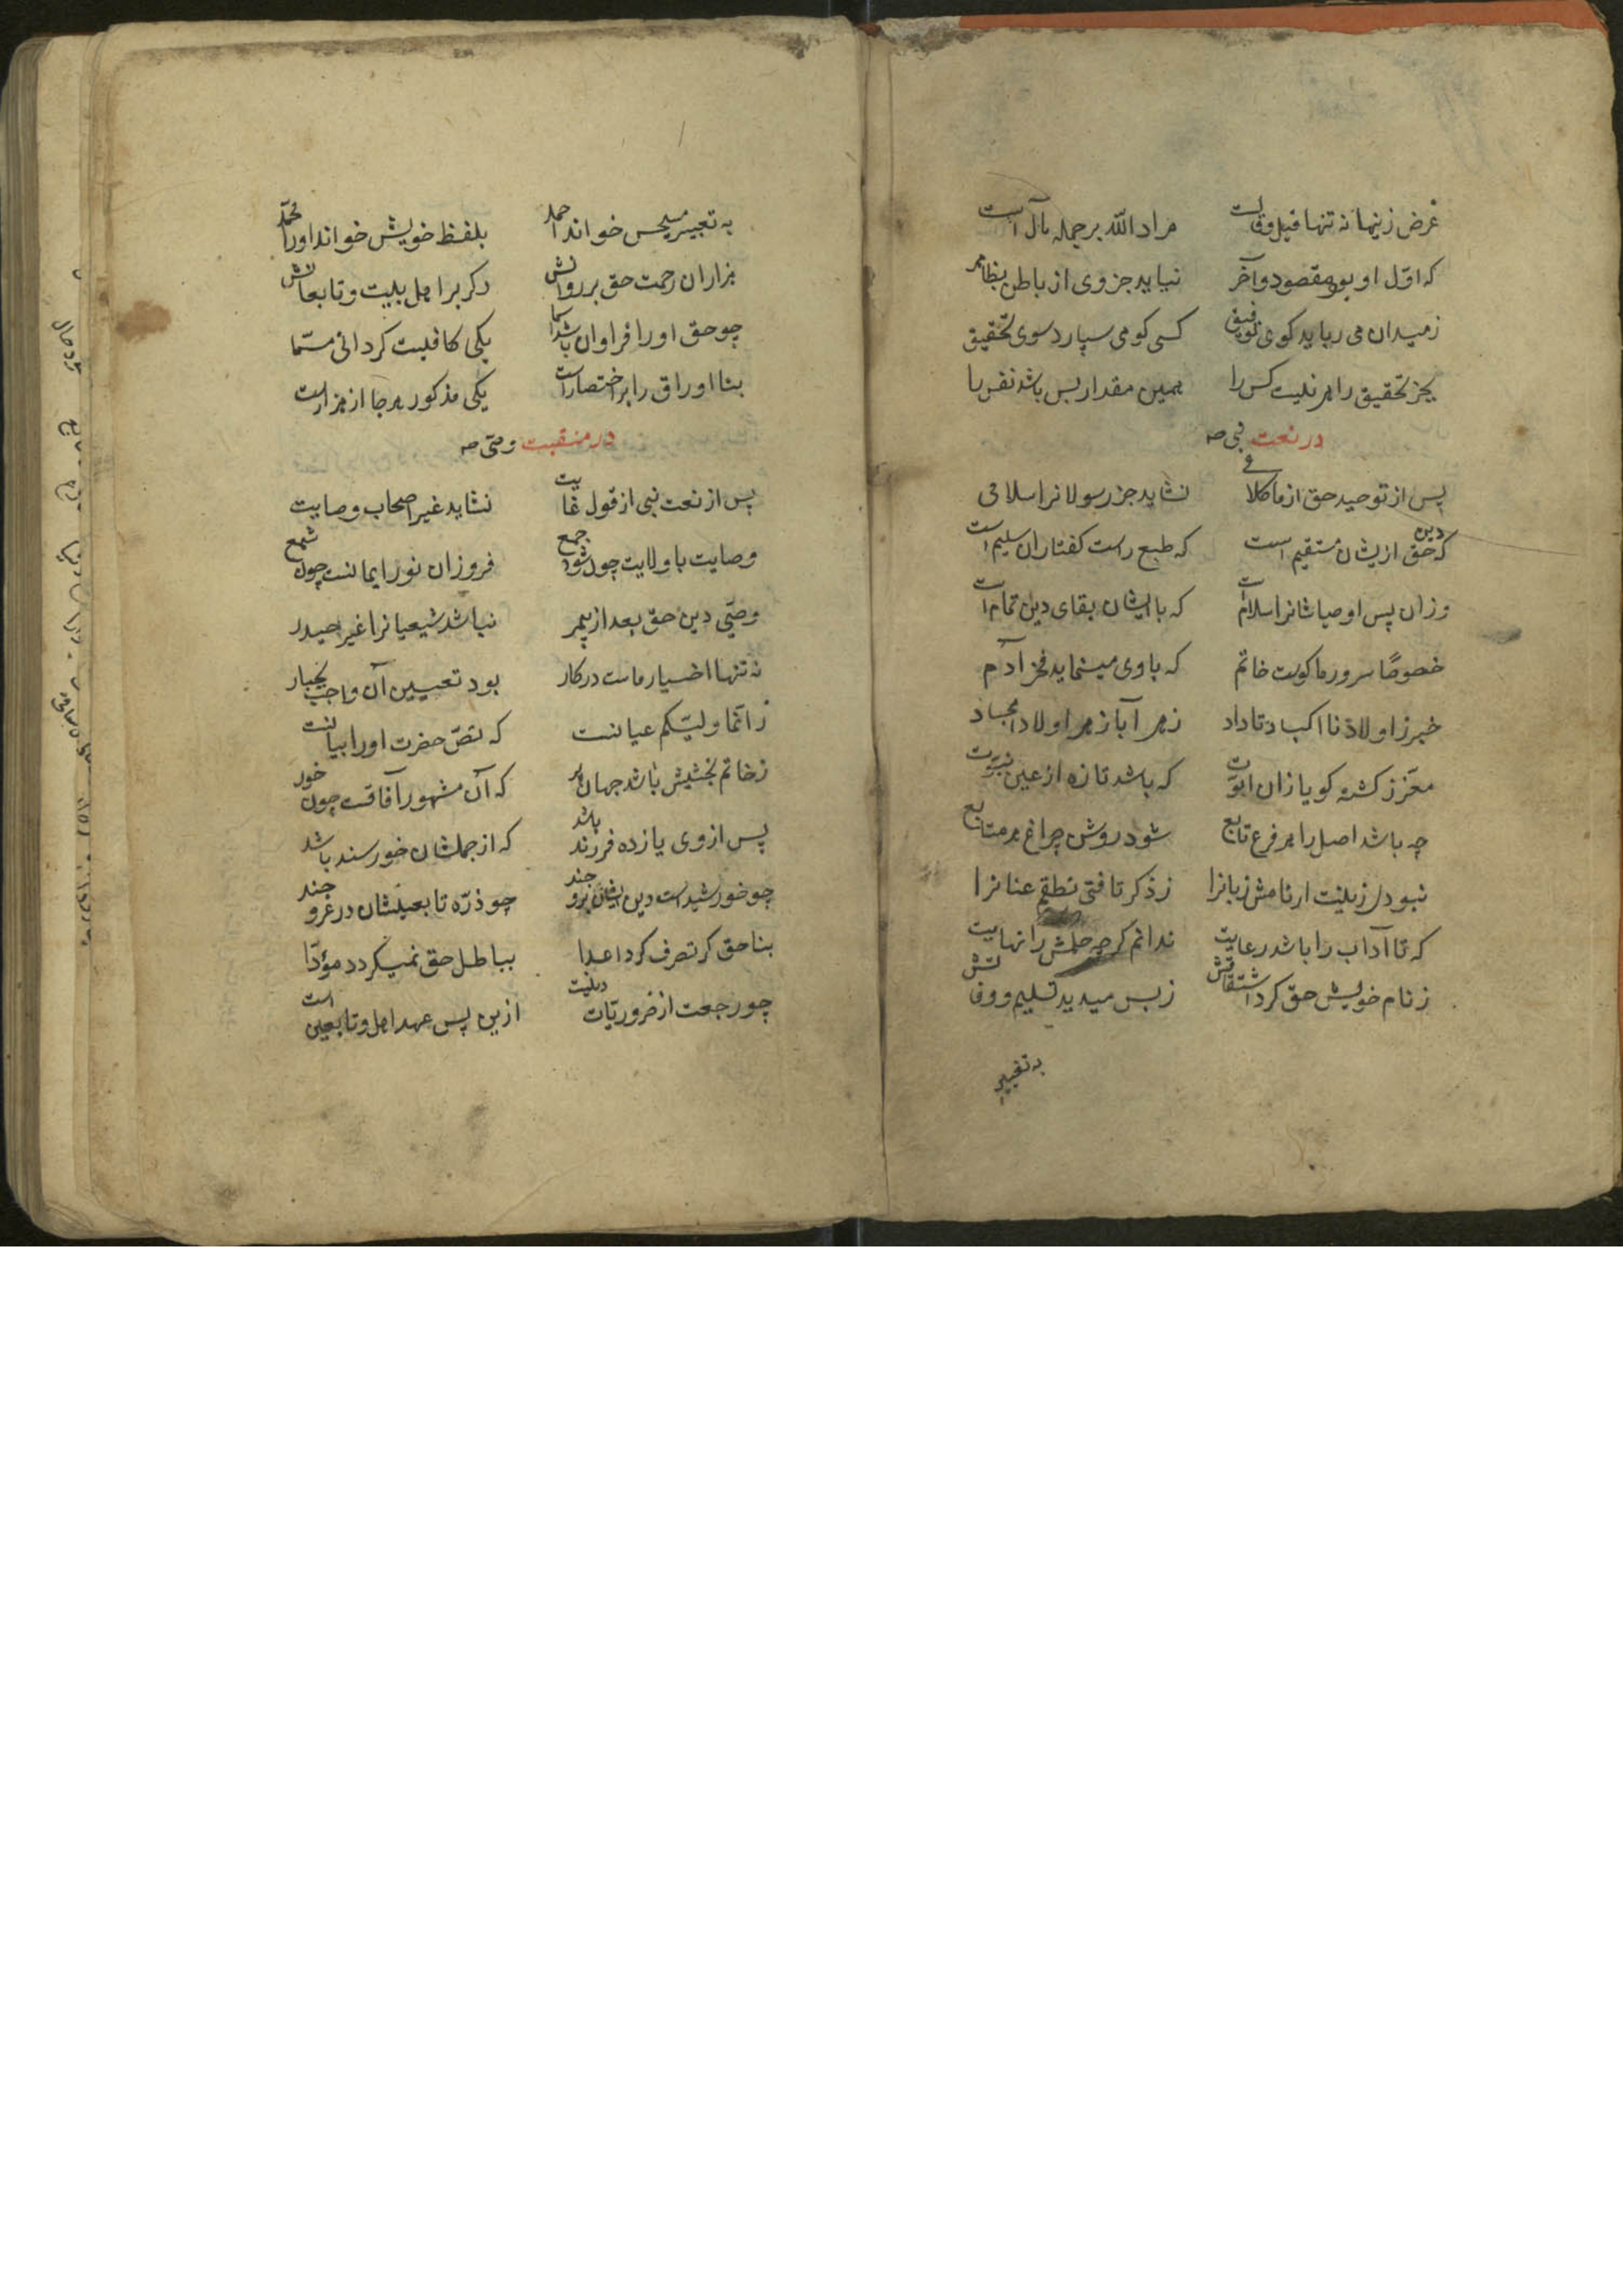 غرض زینها نه تنها قیل و قالست مراد الله بر جمله مآل است
که اوّل او بود مقصود و آخر نیاید جز وی از باطن بظاهر
زمیدان می رباید کوی توفیق کسی کو می سپارد سوی تحقیق
بجز تحقیق راهر نیست کس را همین مقدار بس باشد نفس را
در نعت نبی صه
پس از توحید حق از ما کلا فی نشاید جز رسولانرا سلامی
که دین حق ازیشان مستقیم است که طبع راست کفتاران سلیم است
وزان پس اوصیاشانرا سلام است که با ایشان بقای دین تمام است
خصوصًا سرور ما کوست خاتم که با وی مینماید فخر آدم
خبر ز اولادنا اکباد تا داد زهر آبا زهر اولاد امجاد
معزّز کشته کویا زان ابوّت که باشد تازه از عین نبوّت
چه باشد اصل را هر فرع تابع شود روشن چراغ هر متابع
نبودل زینت ار نامش زبانرا ز ذکر تافتی نطقم عنانرا
که تا آداب را باشد رعایت ندانم کرچه حلمش را نهایت
ز نام خویش حق کرد اشتقاقش ز بس میدید تسلیم و وفاقش
به تعبیر
به تعبیر مسیحس خواند احمد بلفظ خویش خواند او را محمّد
هزاران رحمت حق بر روانش دکر بر اهل بیت و تابعانش
چو حق او را فراوان باشد اسما یکی کافیست کردانی مسمّا
بنا اوراق را بر اختصار است یکی مذکور هرجا از هزار است
در منقبت وصی صه
پس از نعت نبی از قول غایت نشاید غیر اصحاب وصایت
وصایت با ولایت چون شود جمع فروزان نور ایمانست چون شمع
وصیّ دین حق بعد از پیمبر نباشد شیعیانرا غیر حیدر
نه تنها اختیار ماست در کار بود تعیین آن واجب بجبار
ز انّما ولیّکم عیانست که نصّ حضرت او را بیانست
ز خاتم بخشیش باشد جهان پر که آن مشهور آفاقست چون خور
پس از وی یازده فرزند باشد که از جملشان خورسند باشد
چو خورشید است دین ایشان برو چند چو ذرّه تابعیشان در غرو چند
بنا حق کر تصرف کرد اعدا بباطل حق نمیکردد مؤدّا
چو رجعت از ضروریّات دینست ازین پس عهد اهل و تابعین است